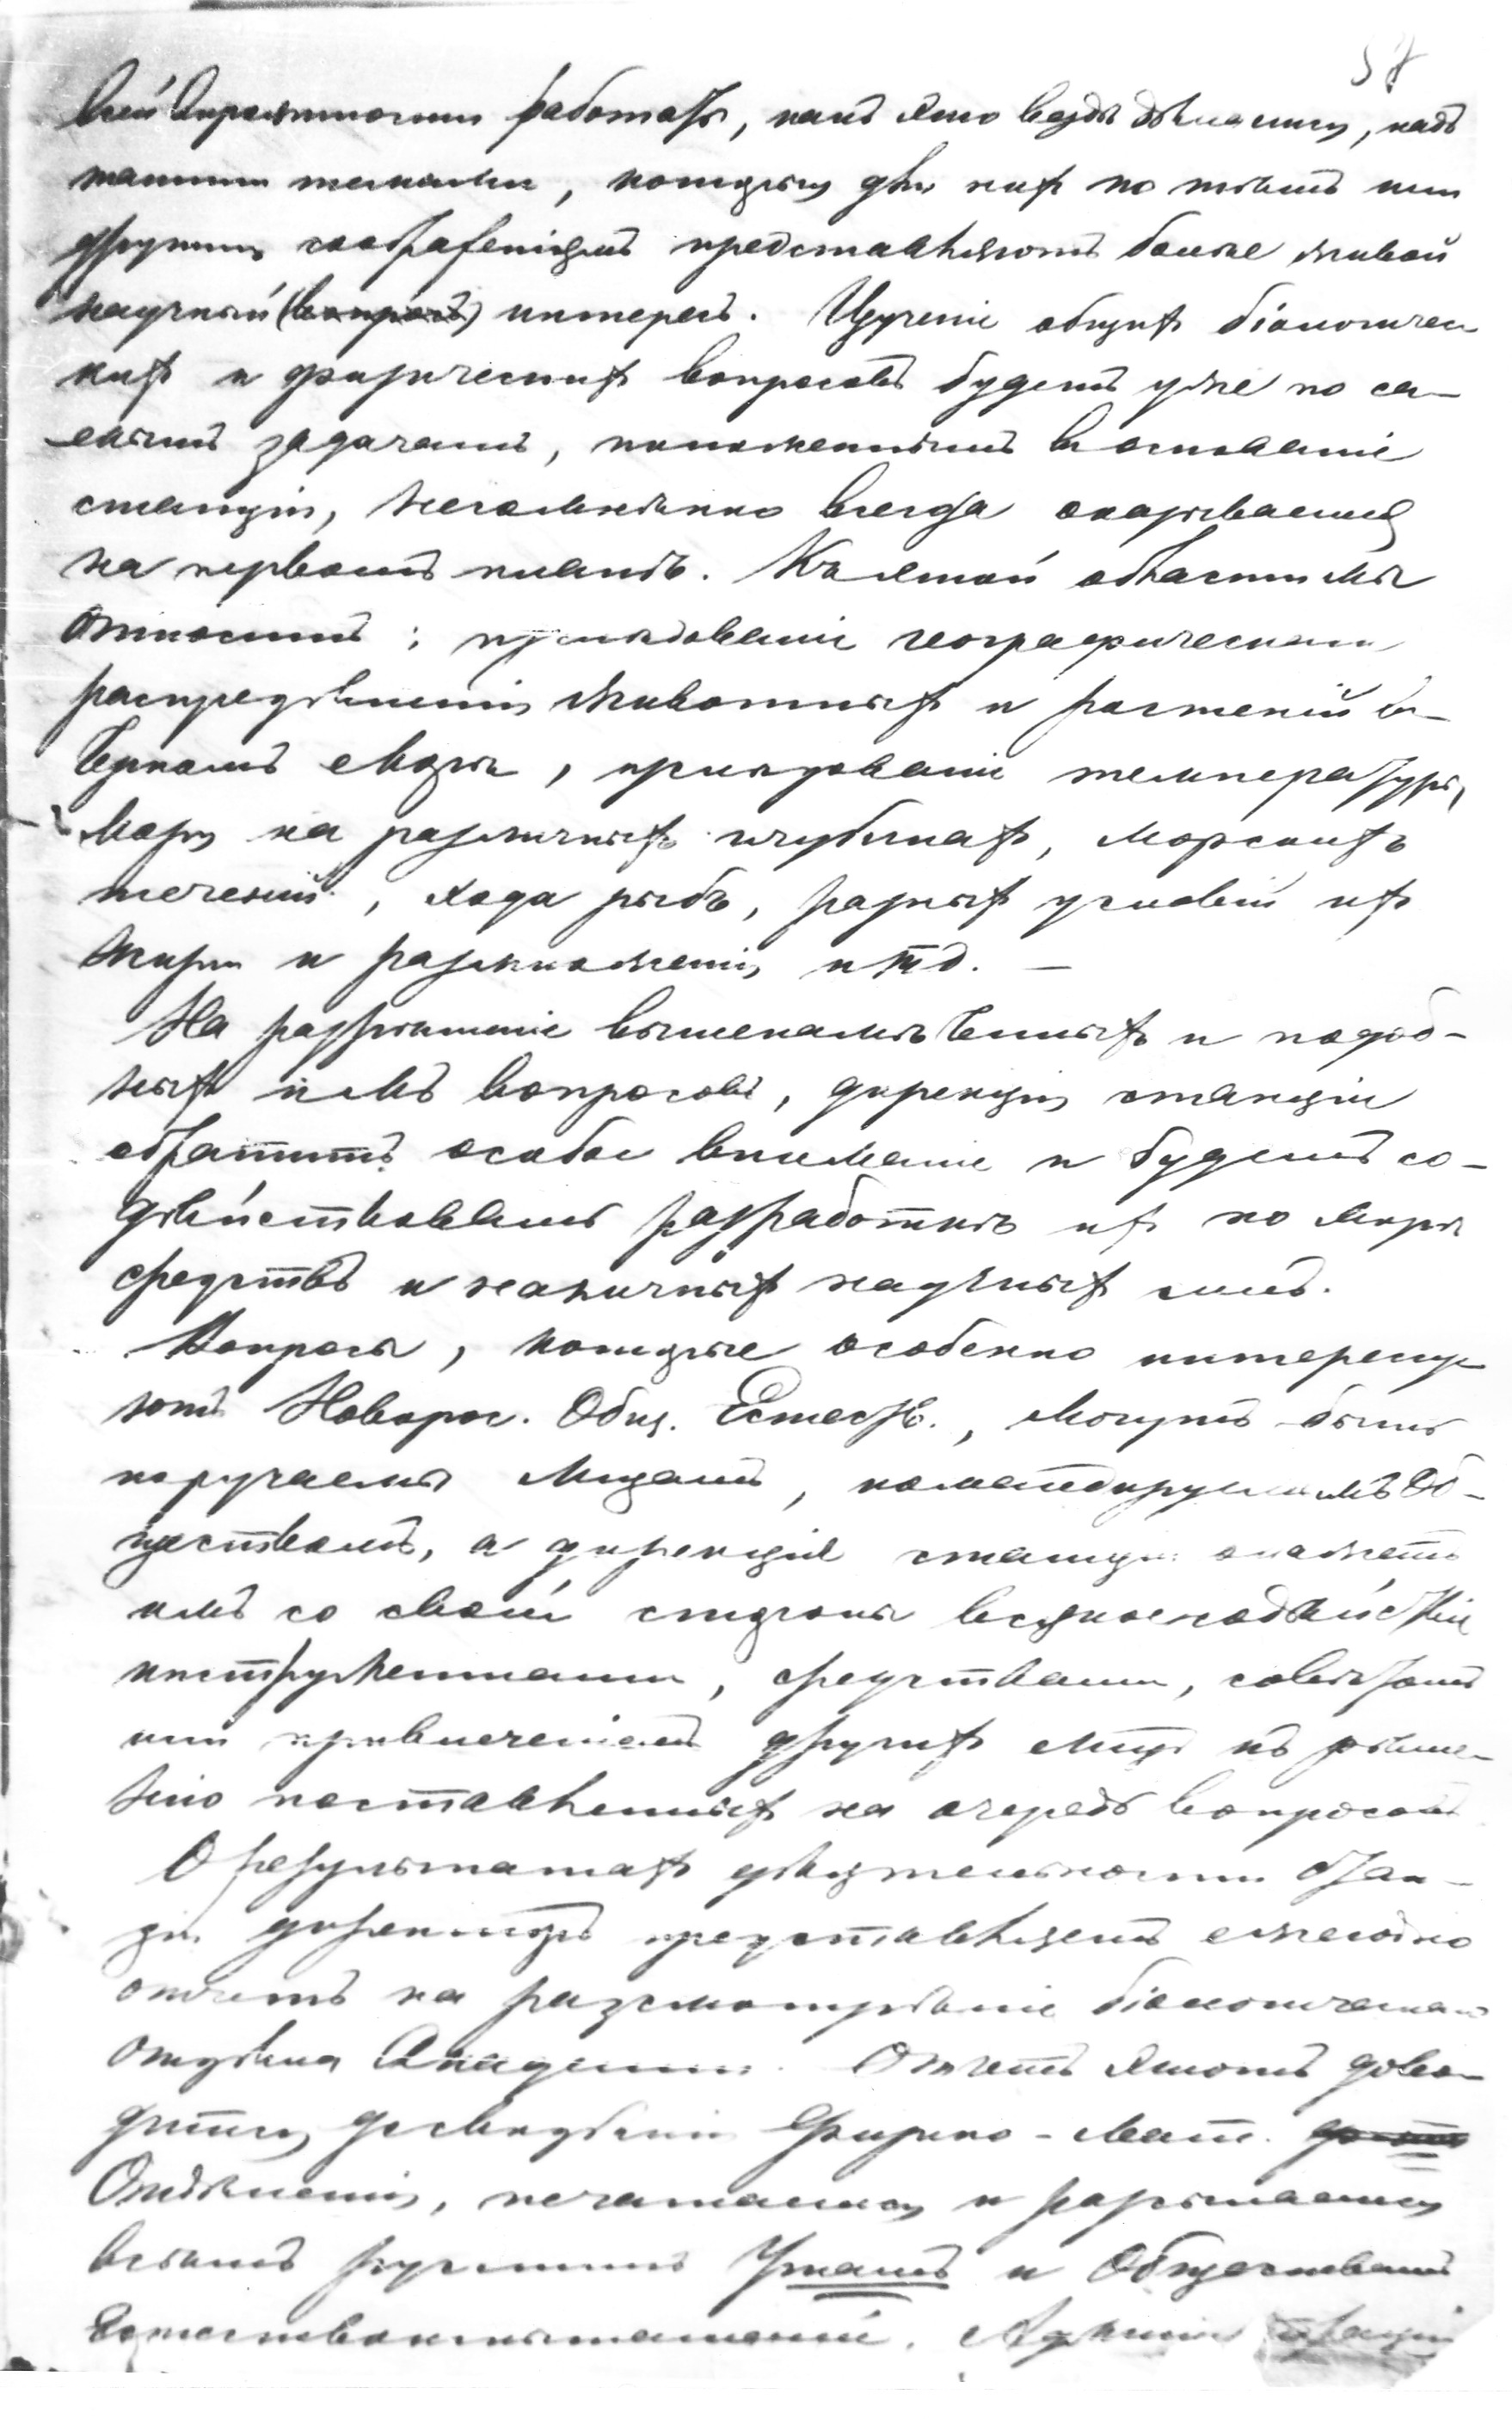 57
всей вѣроятности работать, какъ это вездѣ дѣлается, надъ
такими темами, которыя для нихъ по тѣмъ или
другимъ соображеніямъ представляютъ болѣе живой
научный (вопросъ) интересъ. Изученіе общихъ біологичес
кихъ и физическихъ вопросовъ будетъ уже по са-
мымъ задачамъ, положеннымъ въ основаніе
станціи, несомнѣнно всегда оказываться
на первомъ планѣ. Къ этой области мы
относимъ: изслѣдованіе географическаго
распредѣленія животныхъ и растеній въ
Черномъ морѣ, изслѣдованіе температуры
моря на различныхъ глубинахъ, морскихъ
теченій, хода рыбъ, разныхъ условій ихъ
жизни и размноженія и т д. —
На разрѣшеніе вышеназванныхъ и подоб-
ныхъ имъ вопросовъ, дирекція станціи
обратитъ особое вниманіе и будетъ со-
дѣйствовать разработкѣ ихъ по мѣрѣ
средствъ и наличныхъ научныхъ силъ.
Вопросы, которые особенно интересу
ютъ Новорос. Общ. Естеств., могутъ быть
поручаемы лицамъ, командируемымъ Об-
ществомъ, а дирекція станціи окажетъ
имъ со своей стороны всякое содѣйствіе
инструментами, средствами, совѣтомъ
или привлеченіемъ другихъ лицъ къ рѣше-
нію поставленныхъ на очередь вопросовъ
О результатахъ дѣятельности Стан-
ціи директоръ представляетъ ежегодно
отчетъ на разсмотрѣніе біологическаго
отдѣла Академіи. Отчетъ этотъ дово-
дится до свѣдѣнія Физико-Мат.
Отдѣленія, печатается и разсылается
всѣмъ русскимъ Унамъ и Обществамъ
Естествоиспытателей.